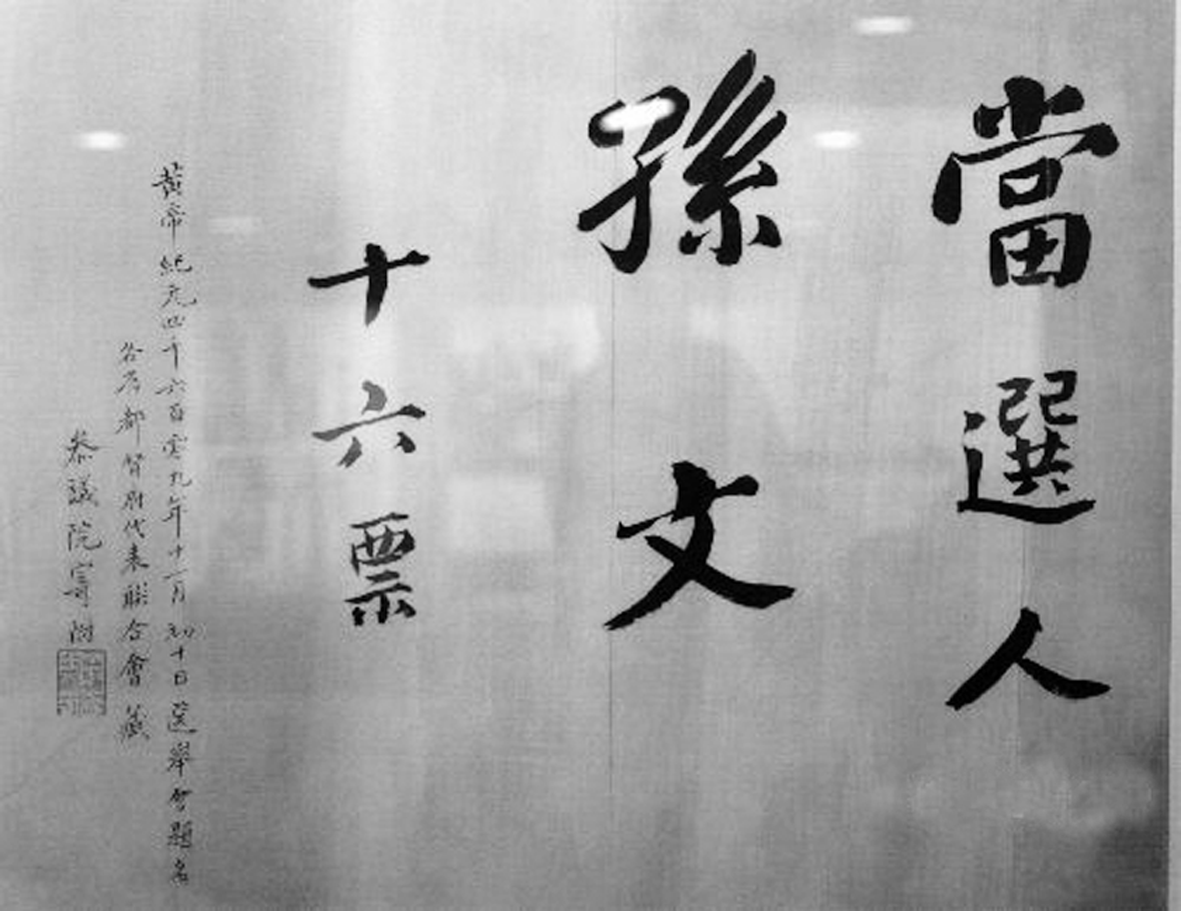 當選人
孫文
十六票
黃帝紀元四千六百零九年十一月初十日選舉會題名
各省都督府代表聯合會藏
叅議院寄附